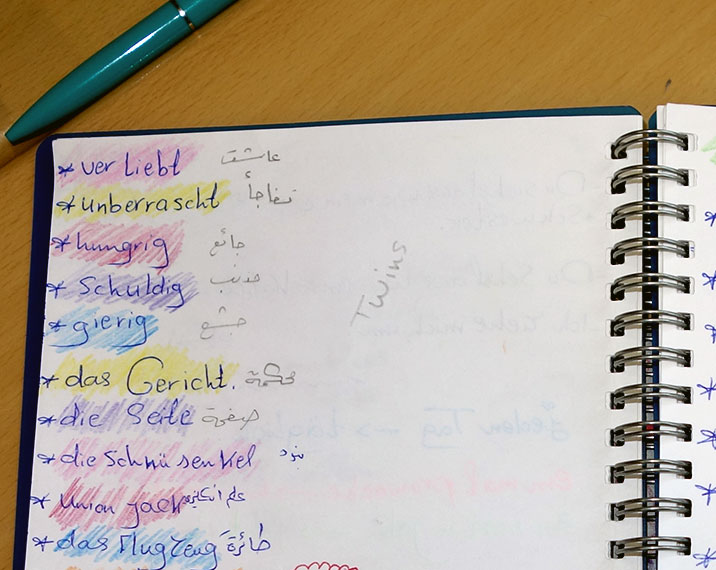 * verliebt عاشق
* unberrascht تفاجأ
* hungrig جائع
* Schuldig مذنب
* gierig جشع
Twins
* das Gericht. محكمة
* die Seite صفحة
* die Schnüsenkel
* Union jack علم انكليزي
* das Flugzeug طائرة